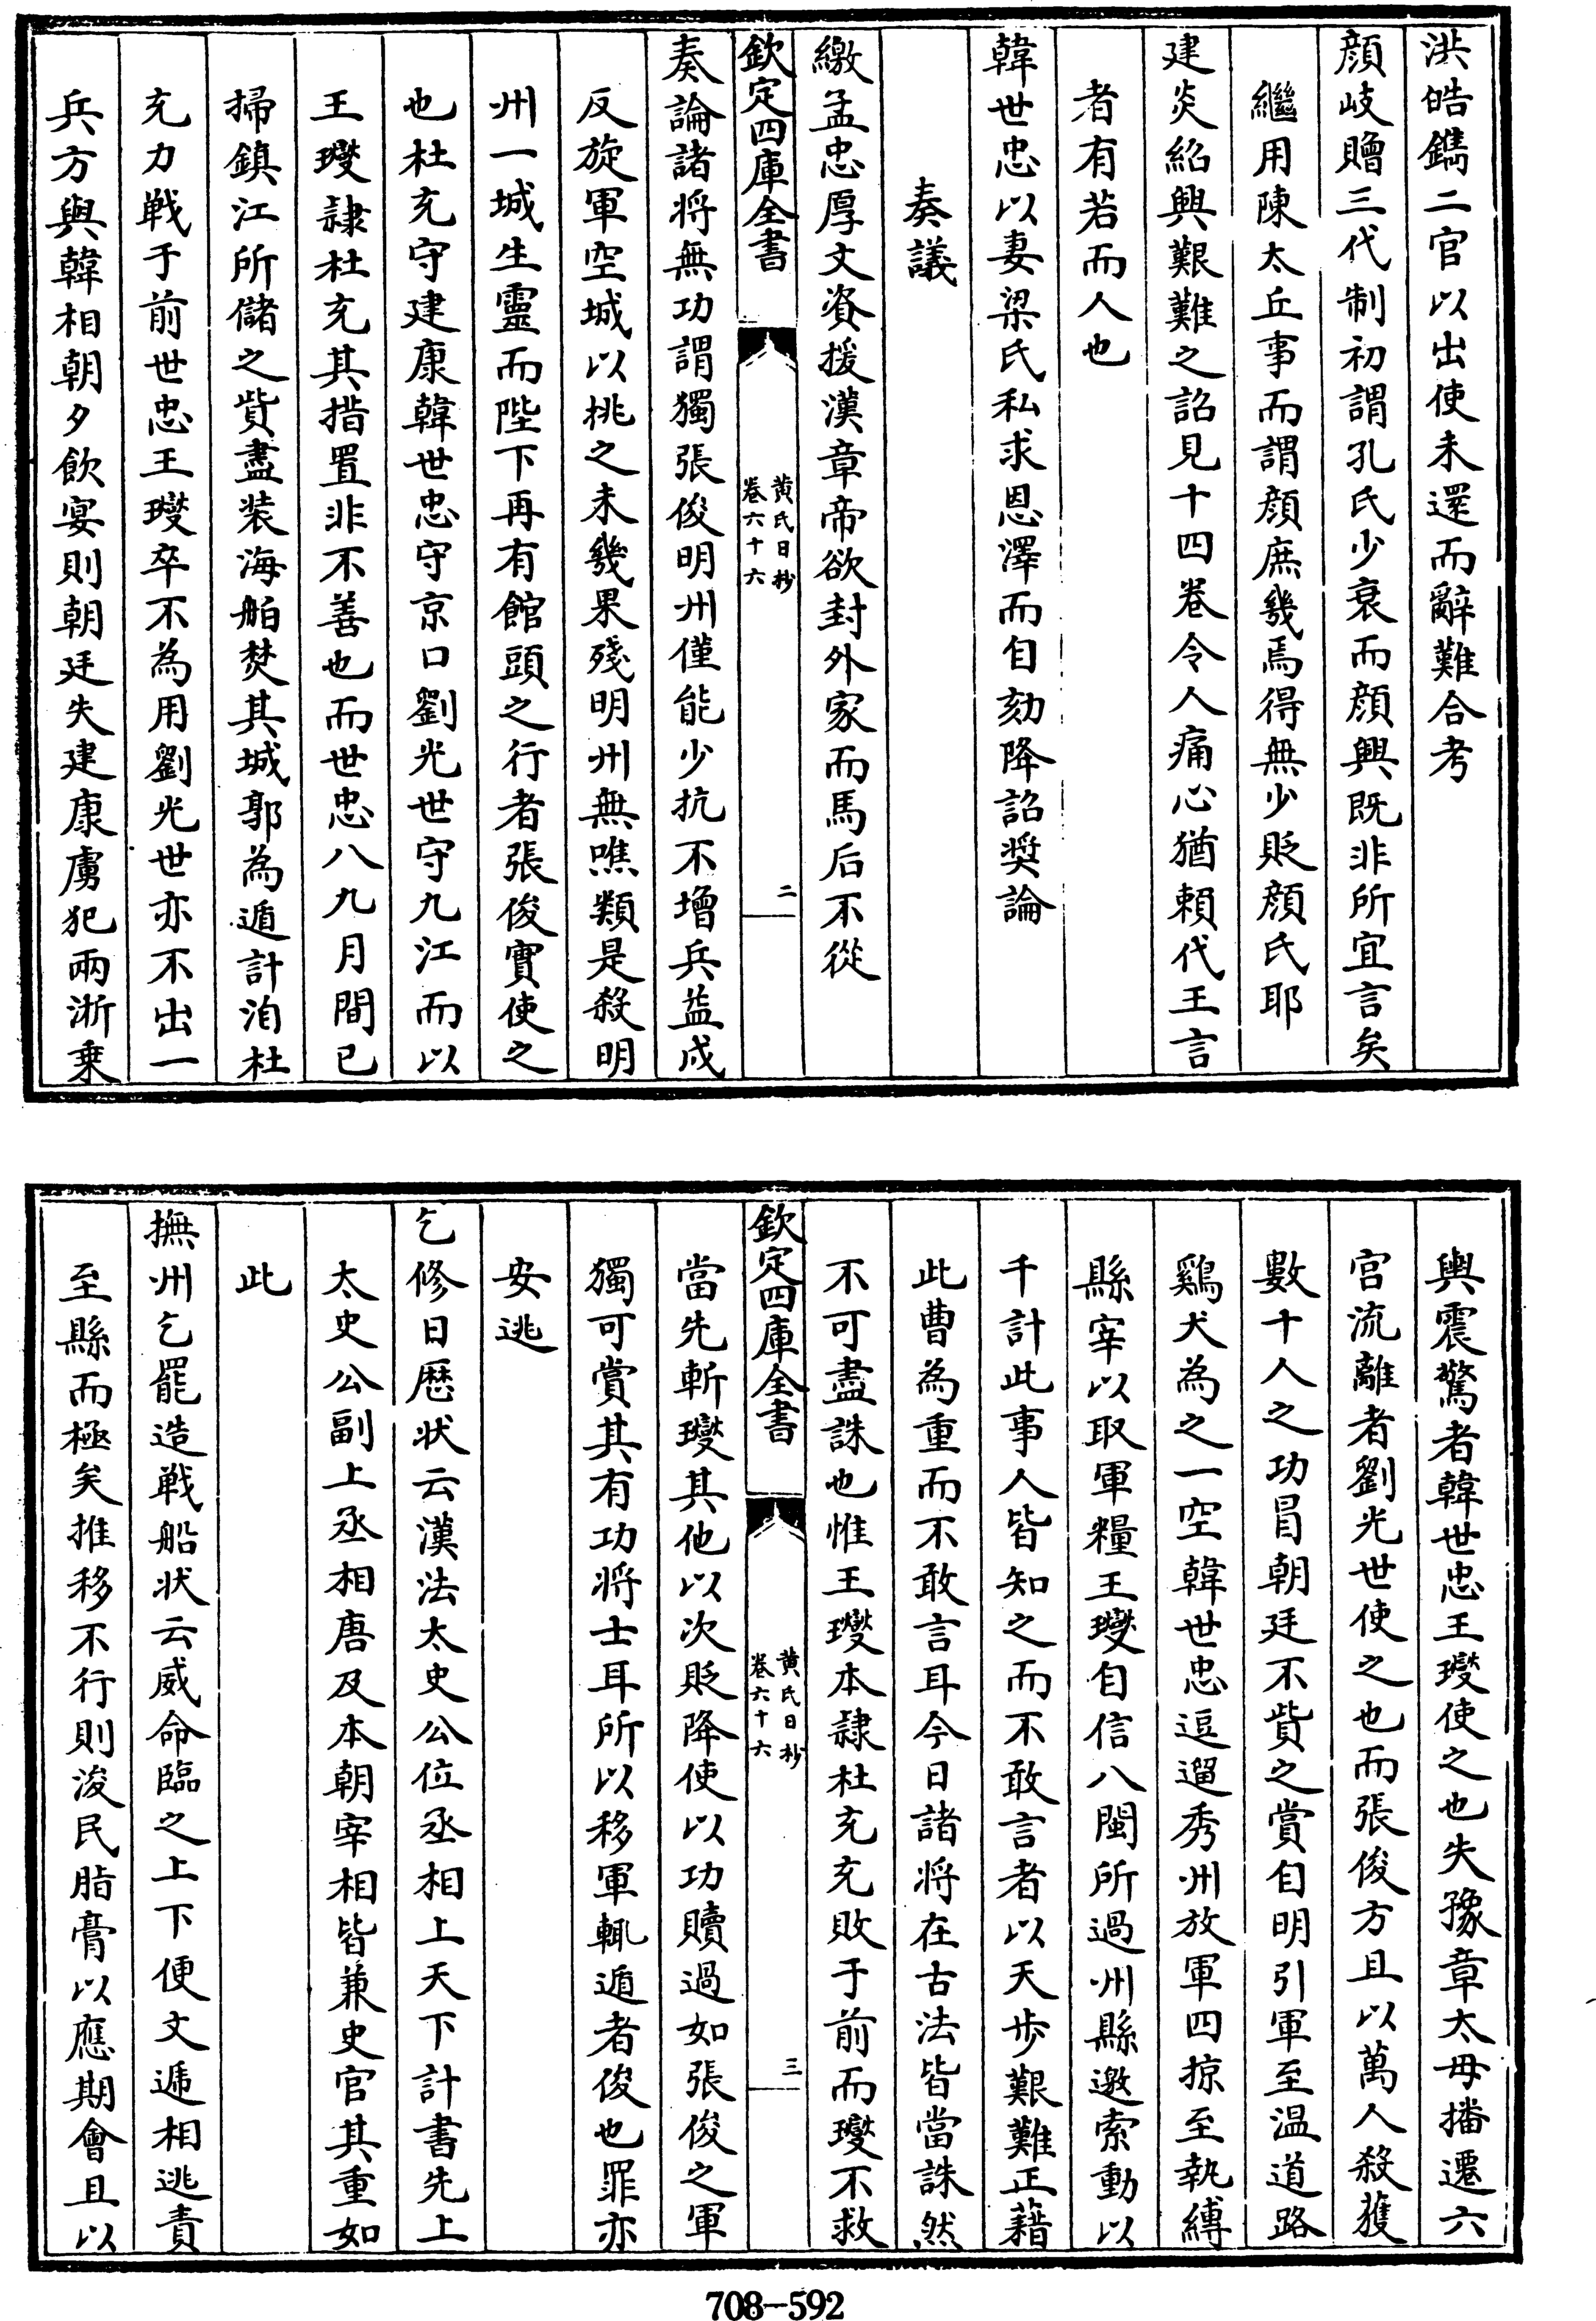 洪皓鐫二官以出使未還而辭難合考
顔岐贈三代制初謂孔氏少衰而顔興既非所宜言矣
繼用陳太丘事而謂顔庶幾焉得無少貶顔氏耶
建炎紹興艱難之詔見十四卷令人痛心猶賴代王言
者有若而人也
韓世忠以妻梁氏私求恩澤而自劾降詔奨論
奏議
繳孟忠厚文資援漢章帝欲封外家而馬后不從
欽定四庫全書
黄氏日抄
卷六十六
二
奏論諸将無功謂獨張俊明州僅能少抗不增兵益戍
反旋軍空城以挑之未幾果殘明州無噍類是殺明
州一城生靈而陛下再有館頭之行者張俊實使之
也杜充守建康韓世忠守京口劉光世守九江而以
王𤫉隷杜充其措置非不善也而世忠八九月間已
掃鎮江所儲之貲盡装海舶焚其城郭為遁計洎杜
充力戦于前世忠王𤫉卒不為用劉光世亦不出一
兵方與韓相朝夕飲宴則朝廷失建康虜犯兩浙乗
輿震驚者韓世忠王𤫉使之也失豫章太母播遷六
宫流離者劉光世使之也而張俊方且以萬人殺獲
數十人之功冐朝廷不貲之賞自明引軍至温道路
鷄犬為之一空韓世忠逗遛秀州放軍四掠至執縛
縣宰以取軍糧王𤫉自信八閩所過州縣邀索動以
千計此事人皆知之而不敢言者以天步艱難正藉
此曹為重而不敢言耳今日諸将在古法皆當誅然
不可盡誅也惟王𤫉本隷杜充充敗于前而𤫉不救
欽定四庫全書
黄氏日抄
卷六十六
三
當先斬𤫉其他以次貶降使以功贖過如張俊之軍
獨可賞其有功将士耳所以移軍輙遁者俊也罪亦
安逃
乞修日厯状云漢法太史公位丞相上天下計書先上
太史公副上丞相唐及本朝宰相皆兼史官其重如
此
撫州乞罷造戦船状云威命臨之上下便文遞相逃責
至縣而極矣推移不行則浚民脂膏以應期會且以
708-592